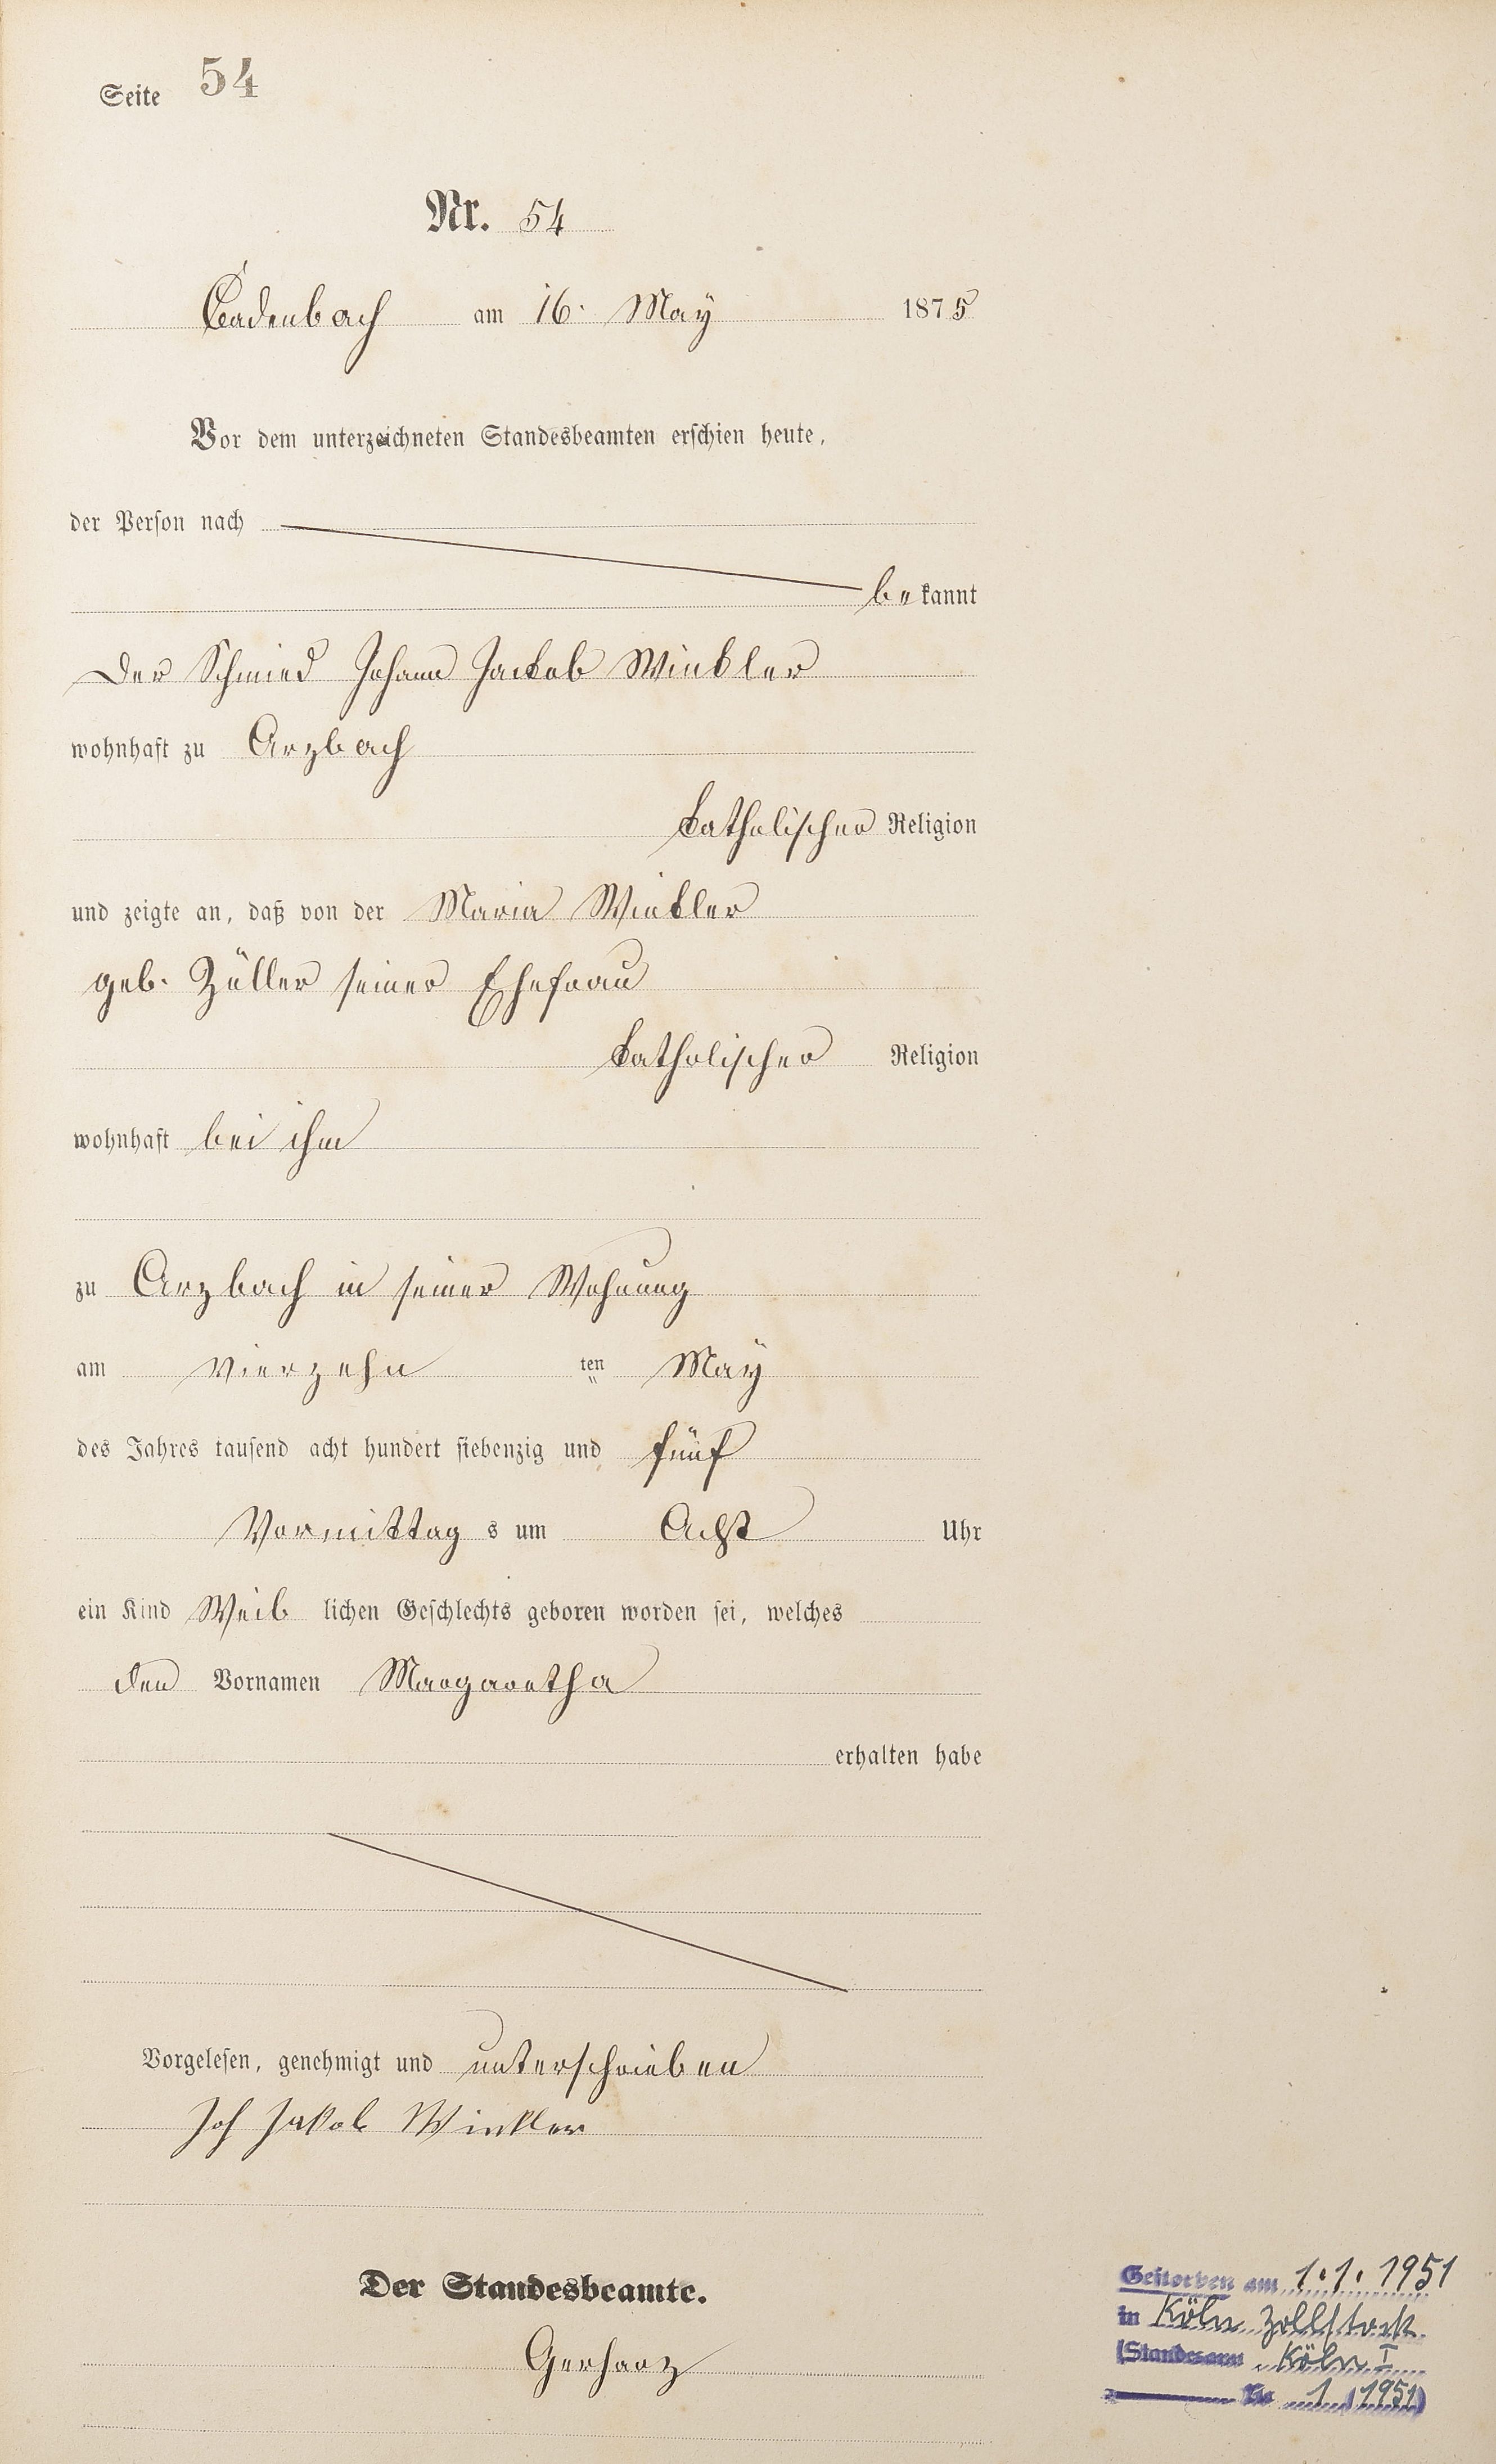 Seite 54
Nr. 54
Cadenbach am 16. Maÿ 1875
Vor dem unterzeichneten Standesbeamten erschien heute,
der Person nach
bekannt
Der Schmied Johann Jackob Winkler
wohnhaft zu Arzbach
katholischer Religion
und zeigte an, daß von der Maria Winkler
geb. Züller seiner Ehefrau
katholischer Religion
wohnhaft bei ihm
zu Arzbach in seiner Wohnung
am Vierzehn ten Maÿ
des Jahres tausend acht hundert siebenzig und fünf
Vormittag s um Acht Uhr
ein Kind Weib lichen Geschlechts geboren worden sei, welches
den Vornamen Margaretha
erhalten habe
Vorgelesen, genehmigt und unterschrieben
Joh Jakob Winkler
Der Standesbeamte.
Gerharz
Gestorben am 1.1.1951
in Köln Zollstock.
(Standesamt Köln I
Nr. 1 / 1951)